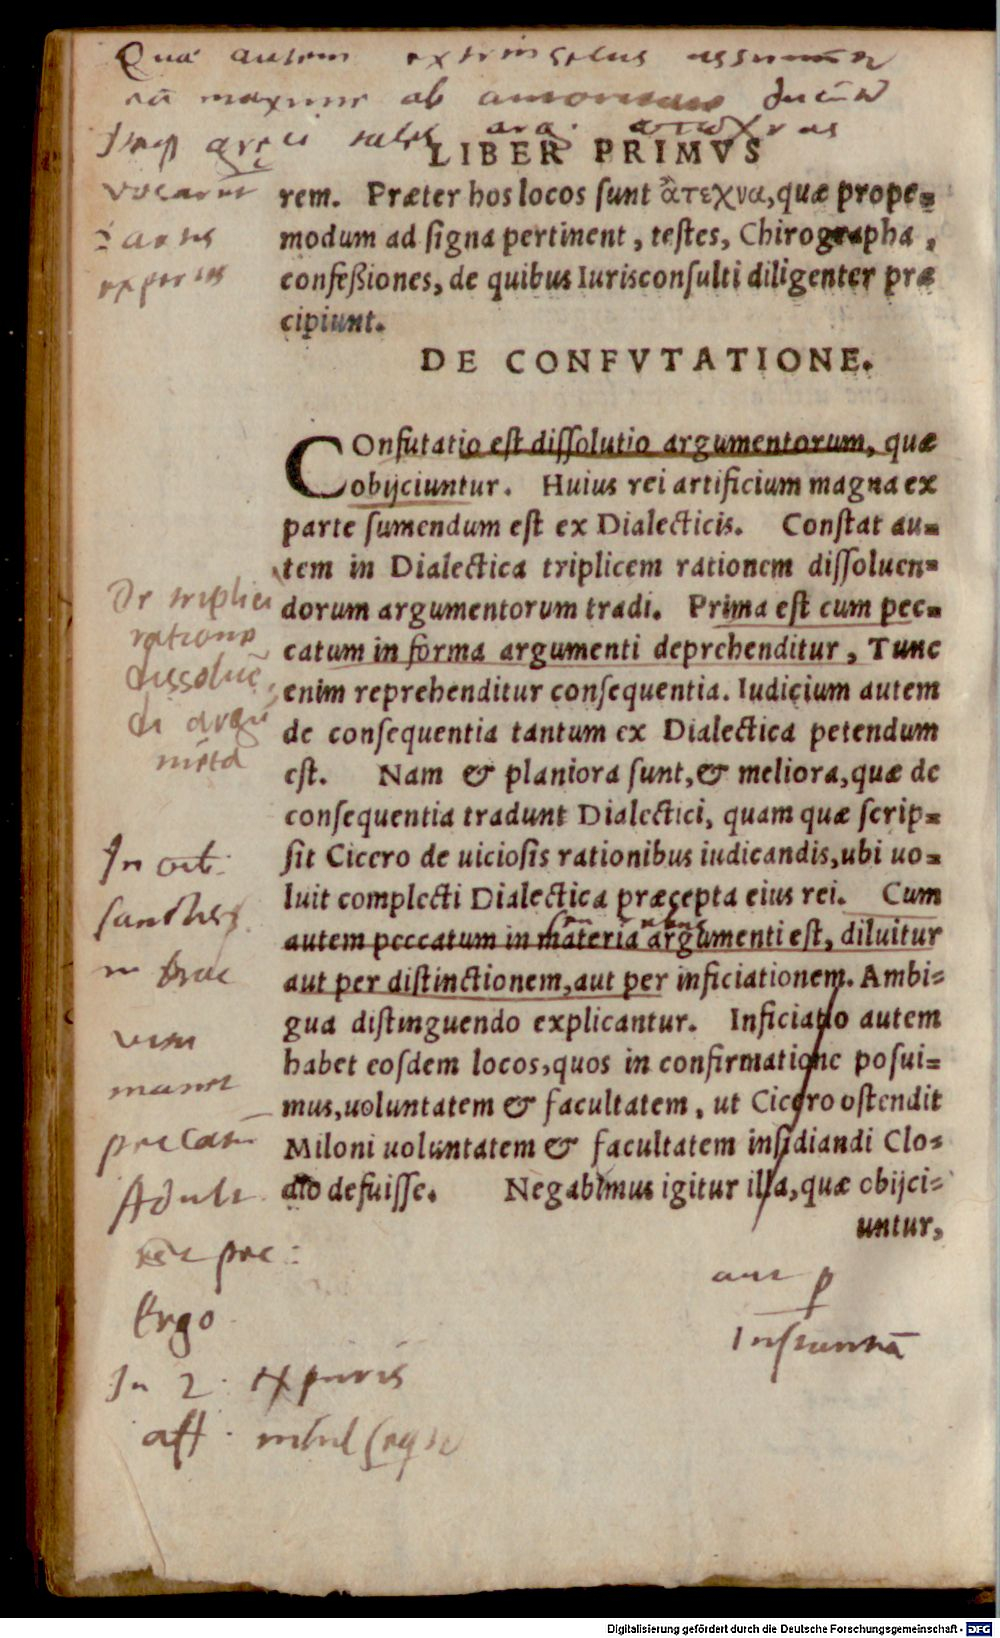 Quae autem extrinsecus assumuntur
ea maxime ab
LIBER PRIMVS
rem. Præter hos locos ſunt ἄτεχνα, quæ prope-
modum ad ſigna pertinent, teſtes, Chirographa,
confeßiones, de quibus Iurisconſulti diligenter præ
cipiunt.
DE CONFVTATIONE.
COnfutatio eſt diſſolutio argumentorum, quæ
obijciuntur. Huius rei artificium magna ex
parte ſumendum eſt ex Dialecticis. Conſtat au-
tem in Dialectica triplicem rationem diſſoluen-
dorum argumentorum tradi. Prima eſt cum pec-
catum in forma argumenti deprehenditur, Tunc
enim reprehenditur conſequentia. Iudicium autem
de conſequentia tantum ex Dialectica petendum
eſt. Nam & planiora ſunt, & meliora, quæ de
conſequentia tradunt Dialectici, quam quæ ſcrip-
ſit Cicero de uicioſis rationibus iudicandis, ubi uo-
luit complecti Dialectica præcepta eius rei. Cum
autem peccatum in materia argumenti eſt, diluitur
aut per diſtinctionem, aut per inficiationem. Ambi-
gua diſtinguendo explicantur. Inficiatio autem
habet eoſdem locos, quos in confirmatione poſui-
mus, uoluntatem & facultatem, ut Cicero oſtendit
Miloni uoluntatem & facultatem inſidiandi Clo-
dio defuiſſe. Negabimus igitur illa, quæ obijci-
untur,
De triplici
ratione
dissoluē
di argu
mēta
Ergo
In 2. ex puris
aff. nihil
aut p
Instantiā
Digitalisierung gefördert durch die Deutsche Forschungsgemeinschaft - DFG